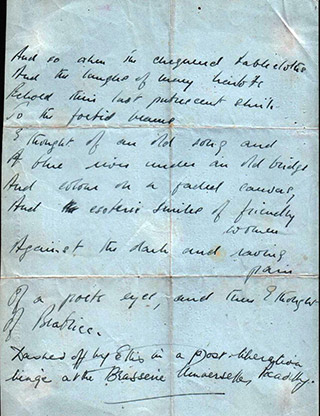 And so when the chequered tablecloths
And the laughs of many harlots
Behold this last
So the foetid
I thought of an old song and
A blue river under an old bridge
And colour on a faded canvas,
And esoteric smiles of friendly
women
Against the dark and raving
pain
Of a poet's eyes, and then I thought
Of Beatrice.
Dashed off by in a post-liberation
binge at the Brasserie Universelle,